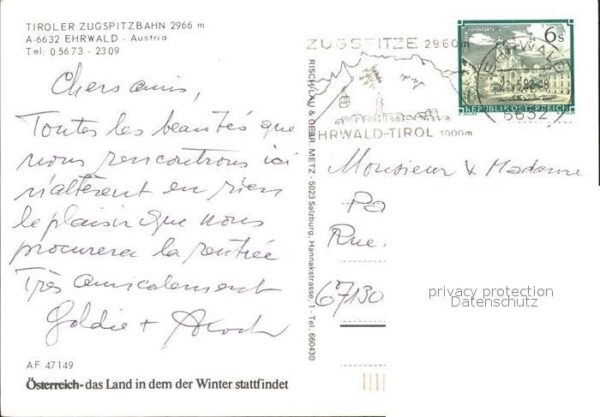 TIROLER ZUGSPITZBAHN 2966 m
A-6632 EHRWALD - Austria
Tel: 05673 - 2309
Chers amis,
Toutes les beautés que
nous rencontrons ici
n'altèrent en rien
le plaisir que nous
procurera la rentrée
Très amicalement
Goldie +
AF 47149
Österreich - das Land in dem der Winter stattfindet
RISCHLAU & GEBR. METZ - 5023 Salzburg, Hannakstrasse, 1 - Tel. 660430
ZUGSPITZE 2960m
EHRWALD-TIROL 1000m
EHRWALD
6632
6 S
REPUBLIK ÖSTERREICH
Monsieur & Madame
Pa
Rue
67130
privacy protection
Datenschutz